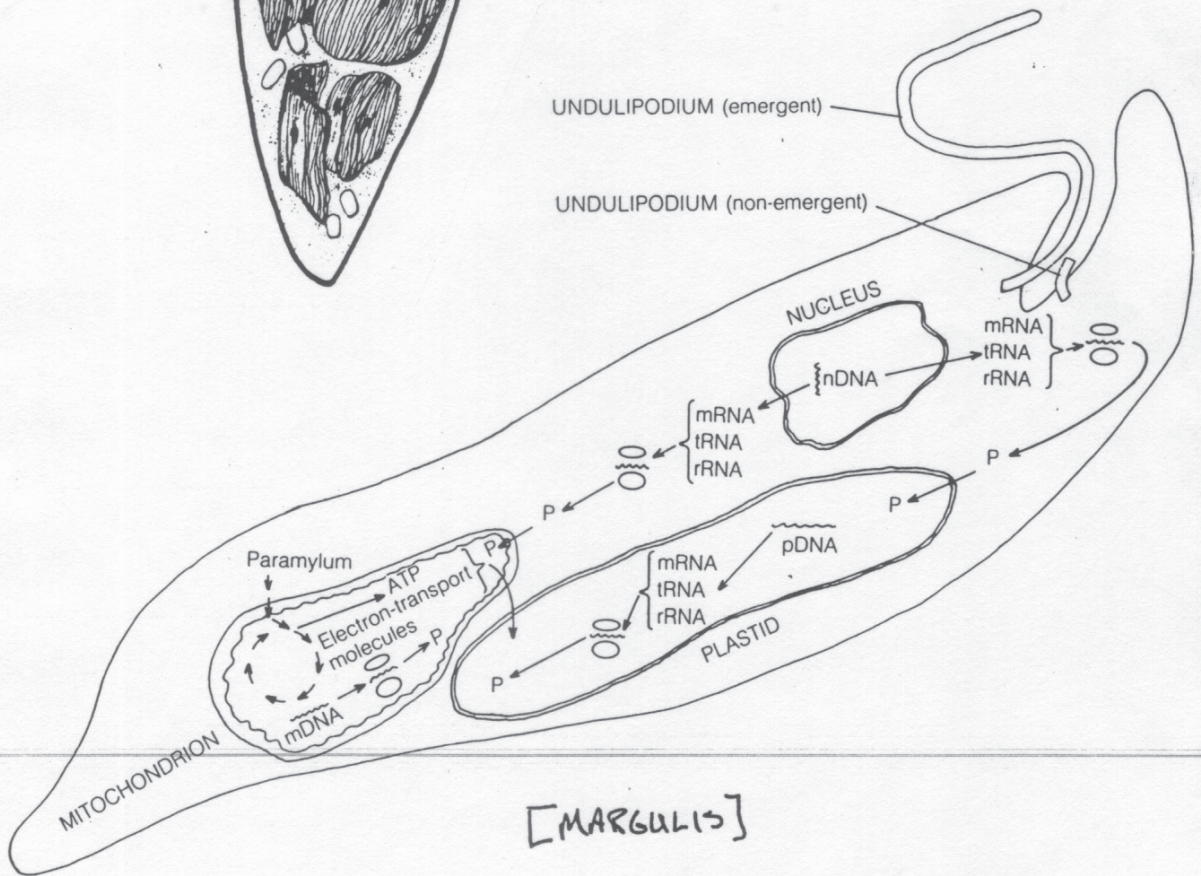 UNDULIPODIUM (emergent)
UNDULIPODIUM (non-emergent)
NUCLEUS
nDNA
mRNA
tRNA
rRNA
mRNA
tRNA
rRNA
P
P
P
P
P
pDNA
mRNA
tRNA
rRNA
P
PLASTID
Paramylum
ATP
Electron-transport
molecules
P
mDNA
MITOCHONDRION
[MARGULIS]